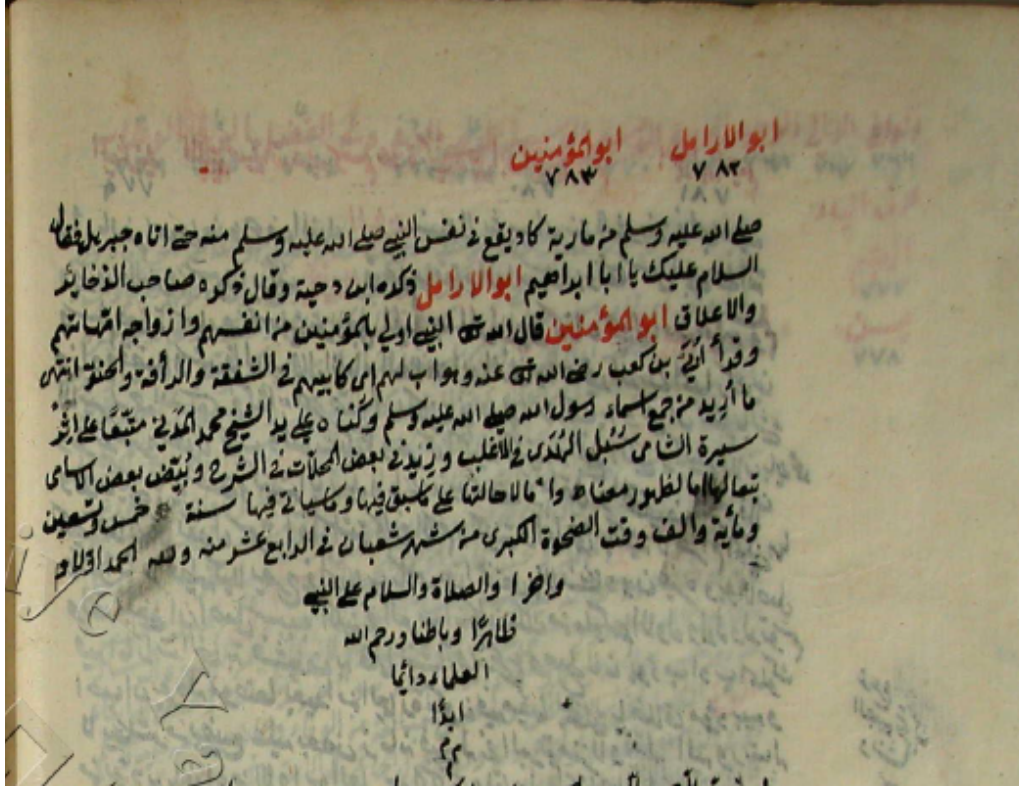 ابو الارامل ابو المؤمنين
٧٨٢ ٧٨٣
صلى الله عليه وسلم من مارية كاد يقع في نفس النبي صلى الله عليه وسلم منه حتى اتاه جبريل فقال
السلام عليك يا ابا ابراهيم ابو الارامل ذكره ابن دحية وقال ذكره صاحب الذخاير
والاعلاق ابو المؤمنين قال الله تعالى النبي اولى بالمؤمنين من انفسهم وازواجه امهاتهم
وقرأ أبيّ بن كعب رضي الله تعالى عنه وهو اب لهم اي كابيهم في الشفقة والرأفة والحنو انتهى
ما أريد من جمع اسماء رسول الله صلى الله عليه وسلم وكناه على يد الشيخ محمد المدني متبّعا على اثر
سيرة الشامي سُبُل الهُدى في الاغلب وزيد في بعض المحلات في الشرح وبُيّض بعض الاسامي
تبعا لها اما لظهور معناه واما لاحالتها على ما سبق فيها وما سيأتي فيها سنة خمس وتسعين
ومأية والف وقت الضحوة الكبرى من شهر شعبان في الرابع عشر منه ولله الحمد اوّلا و
واخرا والصلاة والسلام على النبي
ظاهرًا وباطنا ورحم الله
العلماء دائما
ابدًا
م م
م